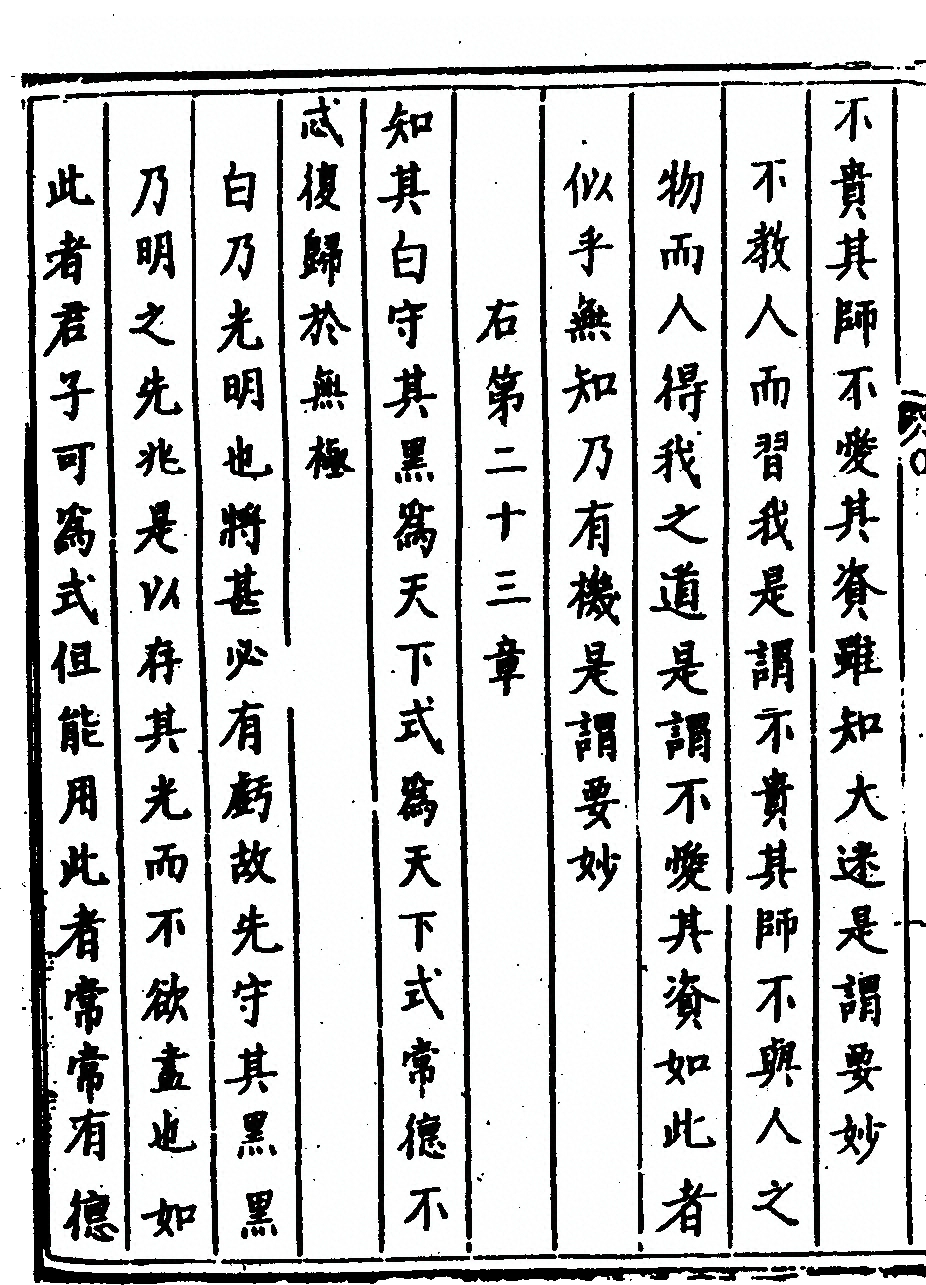 不貴其師不愛其資雖知大迷是謂要妙
不教人而習我是謂不貴其師不與人之
物而人得我之道是謂不愛其資如此者
似乎無知乃有機是謂要妙
右第二十三章
知其白守其黑為天下式為天下式常德不
忒復歸於無極
白乃光明也將甚必有虧故先守其黑黑
乃明之先兆是以存其光而不欲盡也如
此者君子可為式但能用此者常常有德